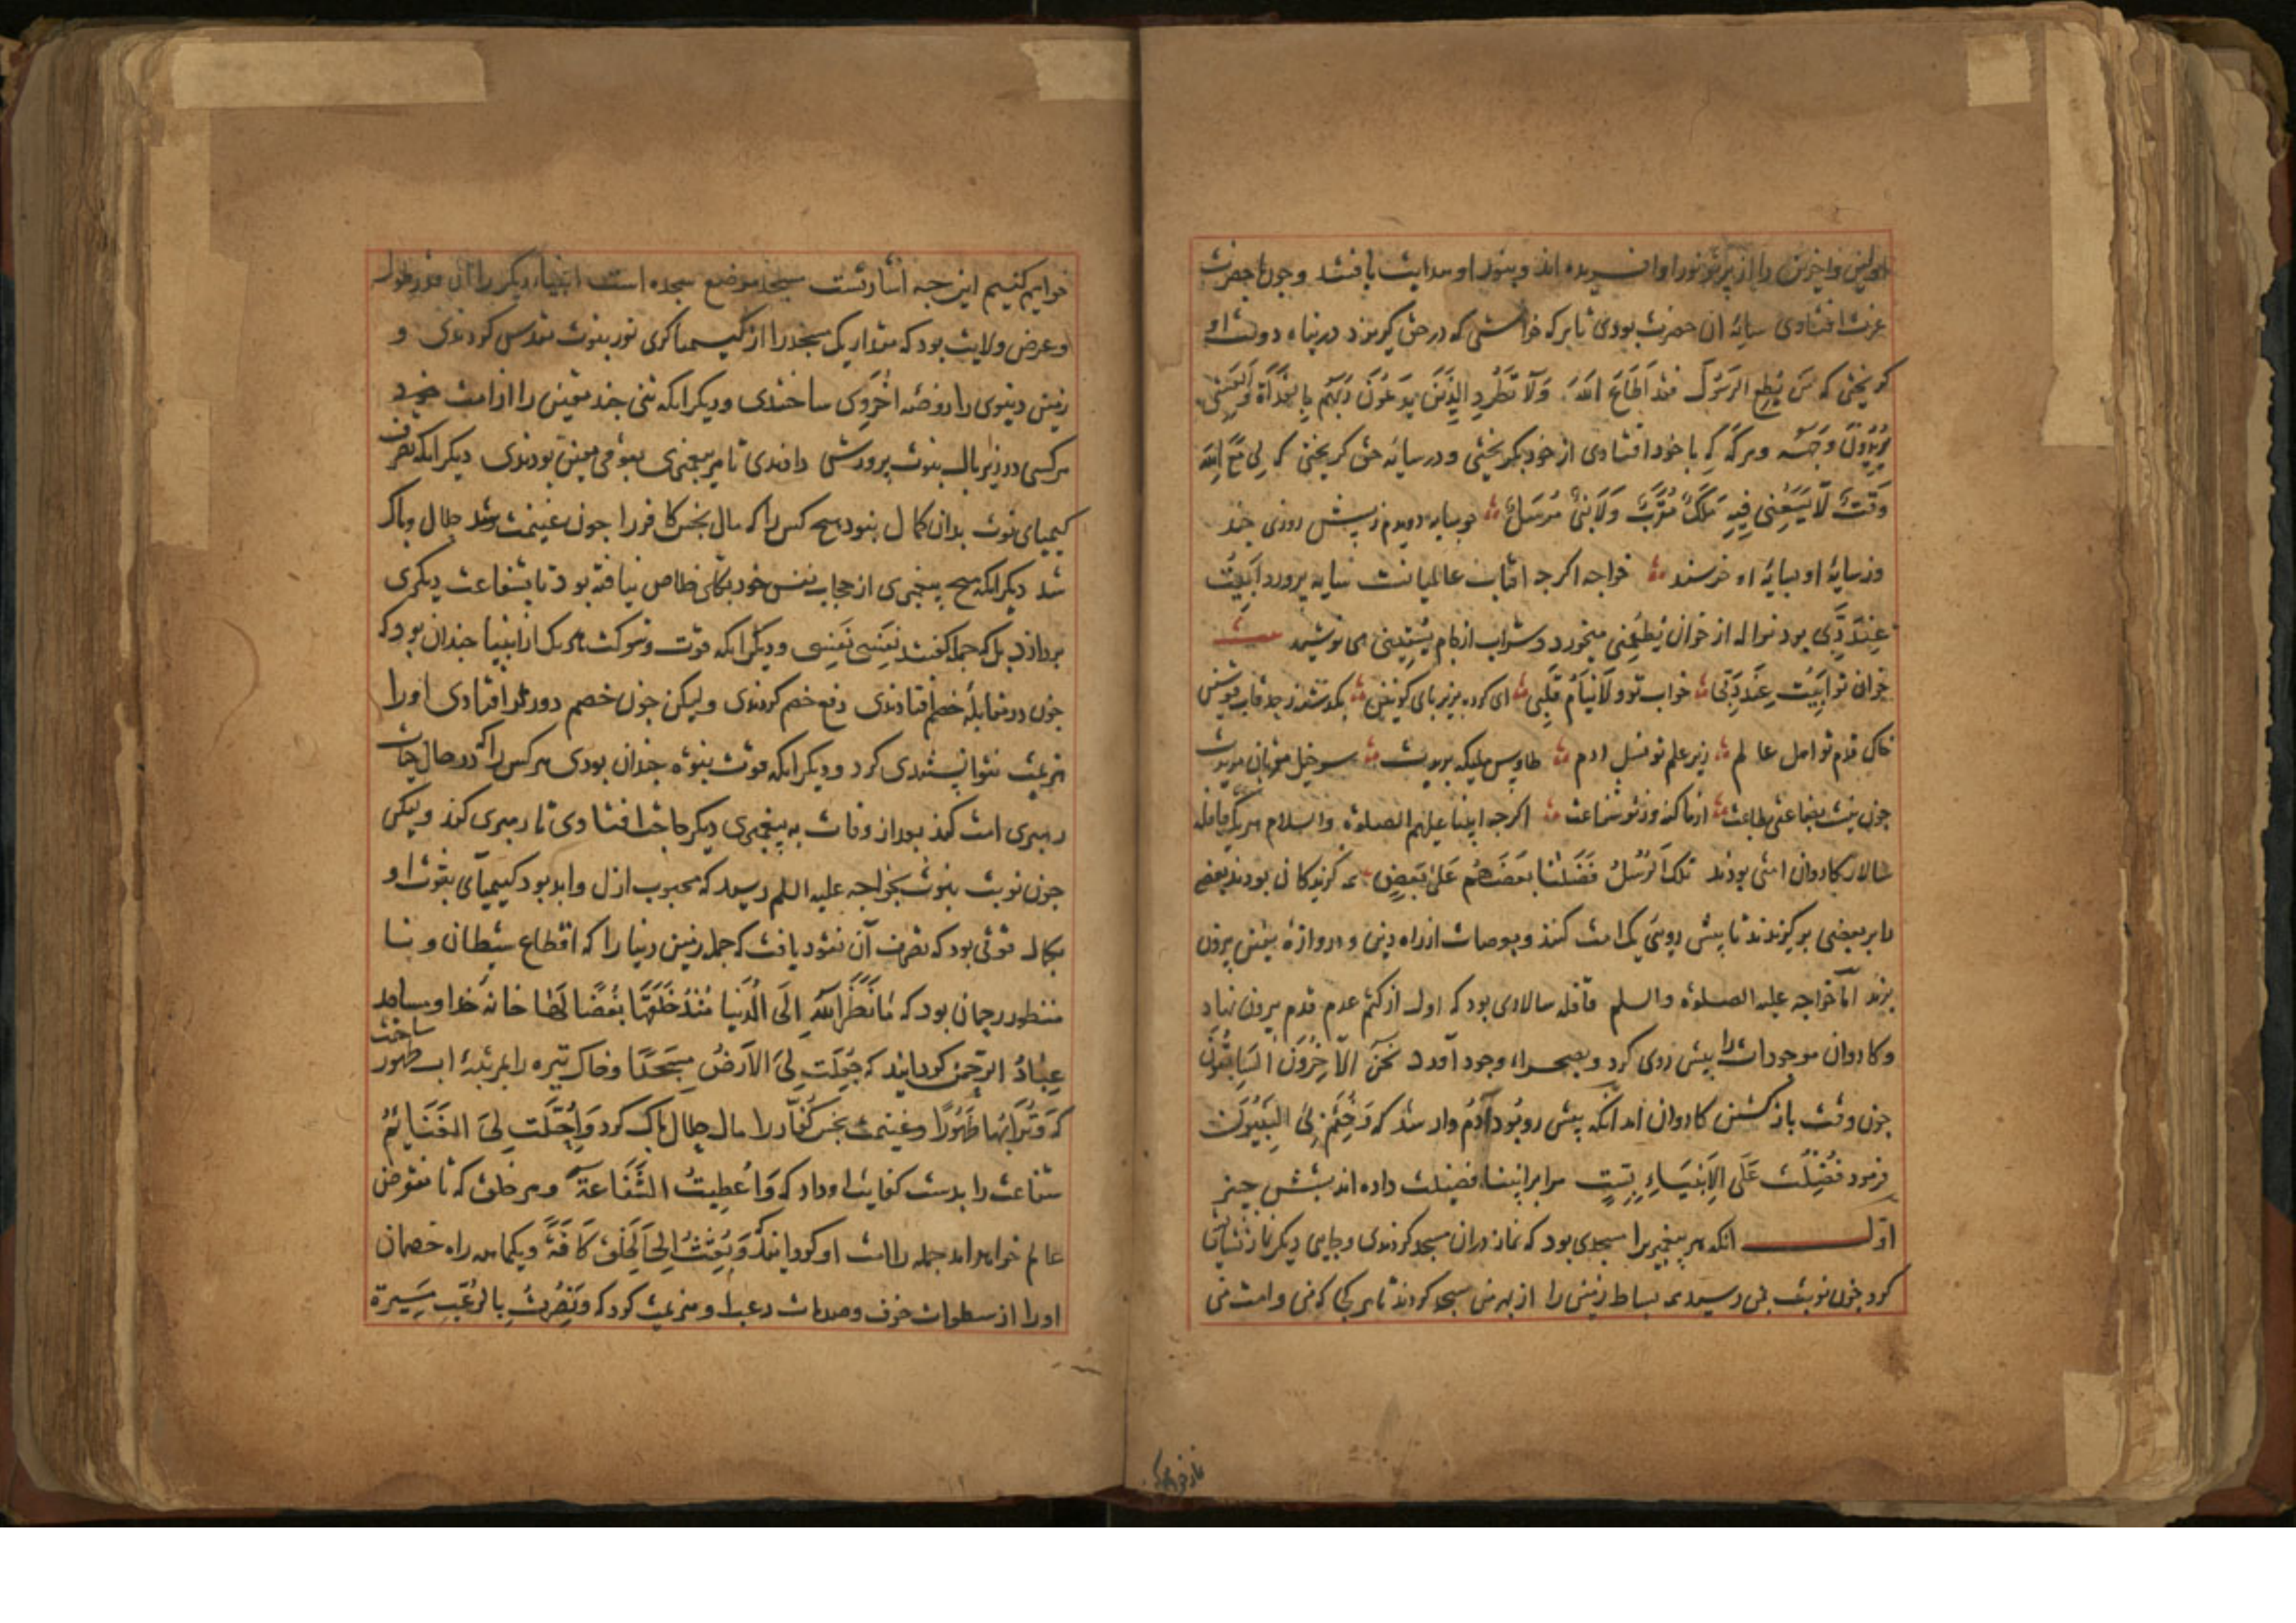 اولین و آخرین را از پرتو نور او آفریده اند و بنور او هدایت یافتند و چون با حضرت
عزت افتادی سایه آن حضرت بودی تا هر که خواستی که در حق گریزد در پناه دولت او
گریختی که من یطع الرسول فقد اطاع الله و لا تطرد الذین یدعون ربهم بالغداة و العشی
یریدون وجهه و هرگه که با خود افتادی از خود بگریختی و در سایه حق گریختی که لی مع الله
وقت لا یسعنی فیه ملک مقرب و لا نبی مرسل چو سایه دویدم ز پیش روزی چند
وز سایه او بسایه او خرسند خواجه اگرچه آفتاب عالمیانست سایه پرورد ابیت
عند ربی بود نواله از خوان یطعمنی میخورد و شراب از جام یسقینی می نوشید
خوان تو ابیت عند ربی خواب تو و لا ینام قلبی ای کرده بزیر پای کونین بگذشته ز حد قاب قوسین
خاک قدم تو اهل عالم زیر علم تو نسل ادم طاوس ملیکه بریدت سرخیل مقربان مریدت
چون نیست بضاعتی بطاعت از ما گنه وز تو شفاعت اگرچه انبیا علیهم الصلوة والسلام هریک قافله
سالار کاروان امتی بودند تلک الرسل فضلنا بعضهم علی بعض همه گزیدگان بودند بعضی
را بر بعضی بر گزیدند تا پیش روی یک امت کنند و بعرصات از راه دین و دروازه یقین بیرون
برند اما خواجه علیه الصلوة والسلم قافله سالاری بود که اول از کتم عدم قدم بیرون نهاد
و کاروان موجودات را پیش روی کرد و بصحراء وجود آورد نحن الآخرون السابقون
چون وقت باز گشتن کاروان آمد انکه پیش رو بود آدم وار شد که و ختم بی النبیون
فرمود فضلت علی الانبیاء بست مرا بر انبیا فضیلت داده اند بشش چیز
اول انکه هر پیغمبر را مسجدی بود که نماز دران مسجد کردندی و جایی دیگر نماز نشایستی
کرد چون نوبت بمن رسید همه بساط زمین را از بهر من مسجد کردند تا هر کجا که من و امت من
نماز خواهیم کرد
خواهیم کنیم این چه اشارتست مسجد موضع سجده است انبیاء دیگر را آن قدر طول
و عرض ولایت بود که مقدار یک مسجد را از کیمیا گری نور نبوت مقدس کردندی و
زمین دنیوی را روضه اخروی ساختندی و دیگر انکه تنی چند معین را از امت خود
هر کسی در زیر بال نبوت پرورش دادندی تا هر پیغمبری بقومی معین بودندی دیگر انکه تصرف
کیمیای نبوت بدان کمال نبود هیچ کس را که مال نجس کافر را چون غنیمت شد حلال و پاک
شد دیگر انکه هیچ پیغمبری از حجاب نفس خود بکلی خلاص نیافته بود تا بشفاعت دیگری
پردازد بلکه جمله گفتند نفسی نفسی و دیگر انکه قوت و شوکت هر یک از انبیا چندان بود که
چون در مقابله خصم افتادندی دفع خصم کردندی ولیکن چون خصم دورتر افتادی او را
هزیمت نتوانستندی کرد و دیگر انکه قوت نبوة چندان بودی هر کس را که در حال حیات
رهبری امت کند بعد از وفات به پیغمبری دیگر حاجت افتادی تا رهبری کند ولیکن
چون نوبت نبوت بخواجه علیه السلم رسید که محبوب ازل و ابد بود کیمیای نبوت او
بکمال قوتی بود که تصرف آن نفوذ یافت که جمله زمین دنیا را که اقطاع شیطان و نا
منظور رحمان بود که ما نظر الله الی الدنیا منذ خلقها بغضا لها خانه خدا و مساجد
عباد الرحمن گردانید که جعلت لی الارض مسجدا و خاک تیره را بمرتبه اب طهور ساخت
که و ترابها طهورا و غنیمت نجس کفار را مال حلال پاک کرد و احلت لی الغنایم
شفاعت را بدست کفایت او داد که و اعطیت الشفاعة و هر خلق که تا منقرض
عالم خواهد امد جمله را امت او گردانید و بعثت الی الخلق کافة و یکماهه راه خصمان
او را از سطوات خوف و صدمات رعبا و هزیمت کرد که و نصرت بالرعب مسیرة